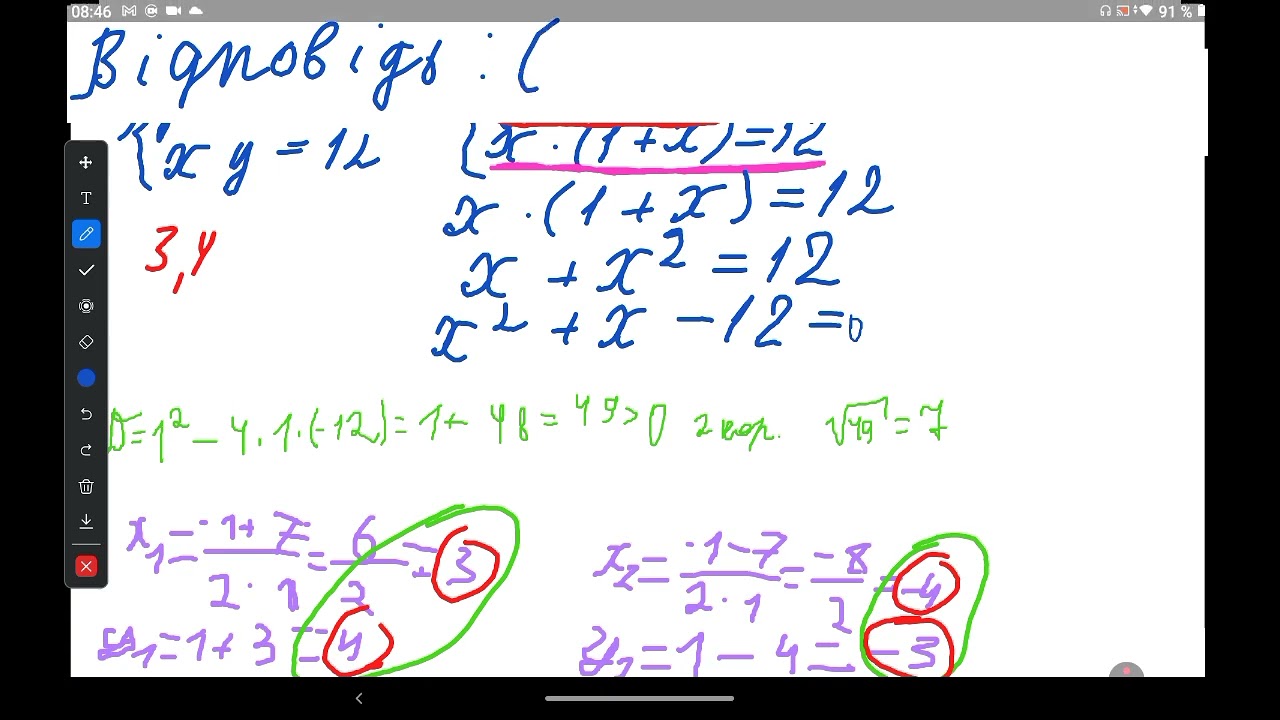 08:46 91 %
Відповідь : (
{ x y = 12 { x · (1 + x) = 12
x · (1 + x) = 12
3,4
x + x² = 12
x² + x - 12 = 0
T
D = 1² - 4 · 1 · (-12) = 1 + 48 = 49 > 0 2 кор. √49 = 7
x₁ = -1 + 7 / 2 · 1 = 6 / 2 = 3 x₂ = -1 - 7 / 2 · 1 = -8 / 2 = -4
y₁ = 1 + 3 = 4 y₂ = 1 - 4 = -3